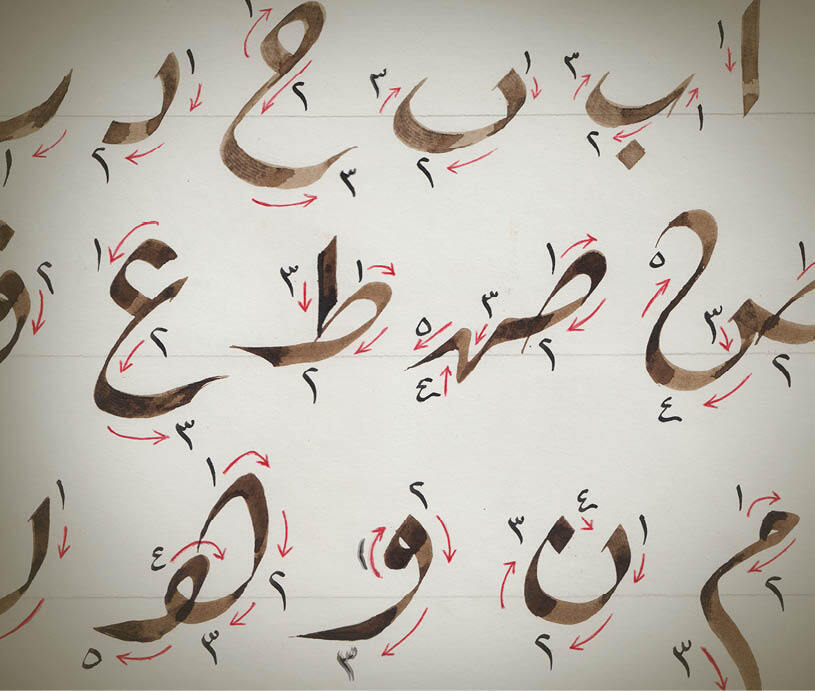 ا ١ ب ١ ٢ ٣ ں ١ ٢ ٣ ح ١ ٢ ٣ د ١ ٢ ١
ص ١ ٢ ٣ ٤ ٥ صـ ١ ٢ ٣ ٤ ٥ ط ١ ٢ ٣ ع ١ ٢ ٣ ٢
م ١ ٢ ٣ ن ١ ٢ ٣ ٤ و ١ ٢ ٣ هـ ١ ٢ ٣ ٤ ٥ ١